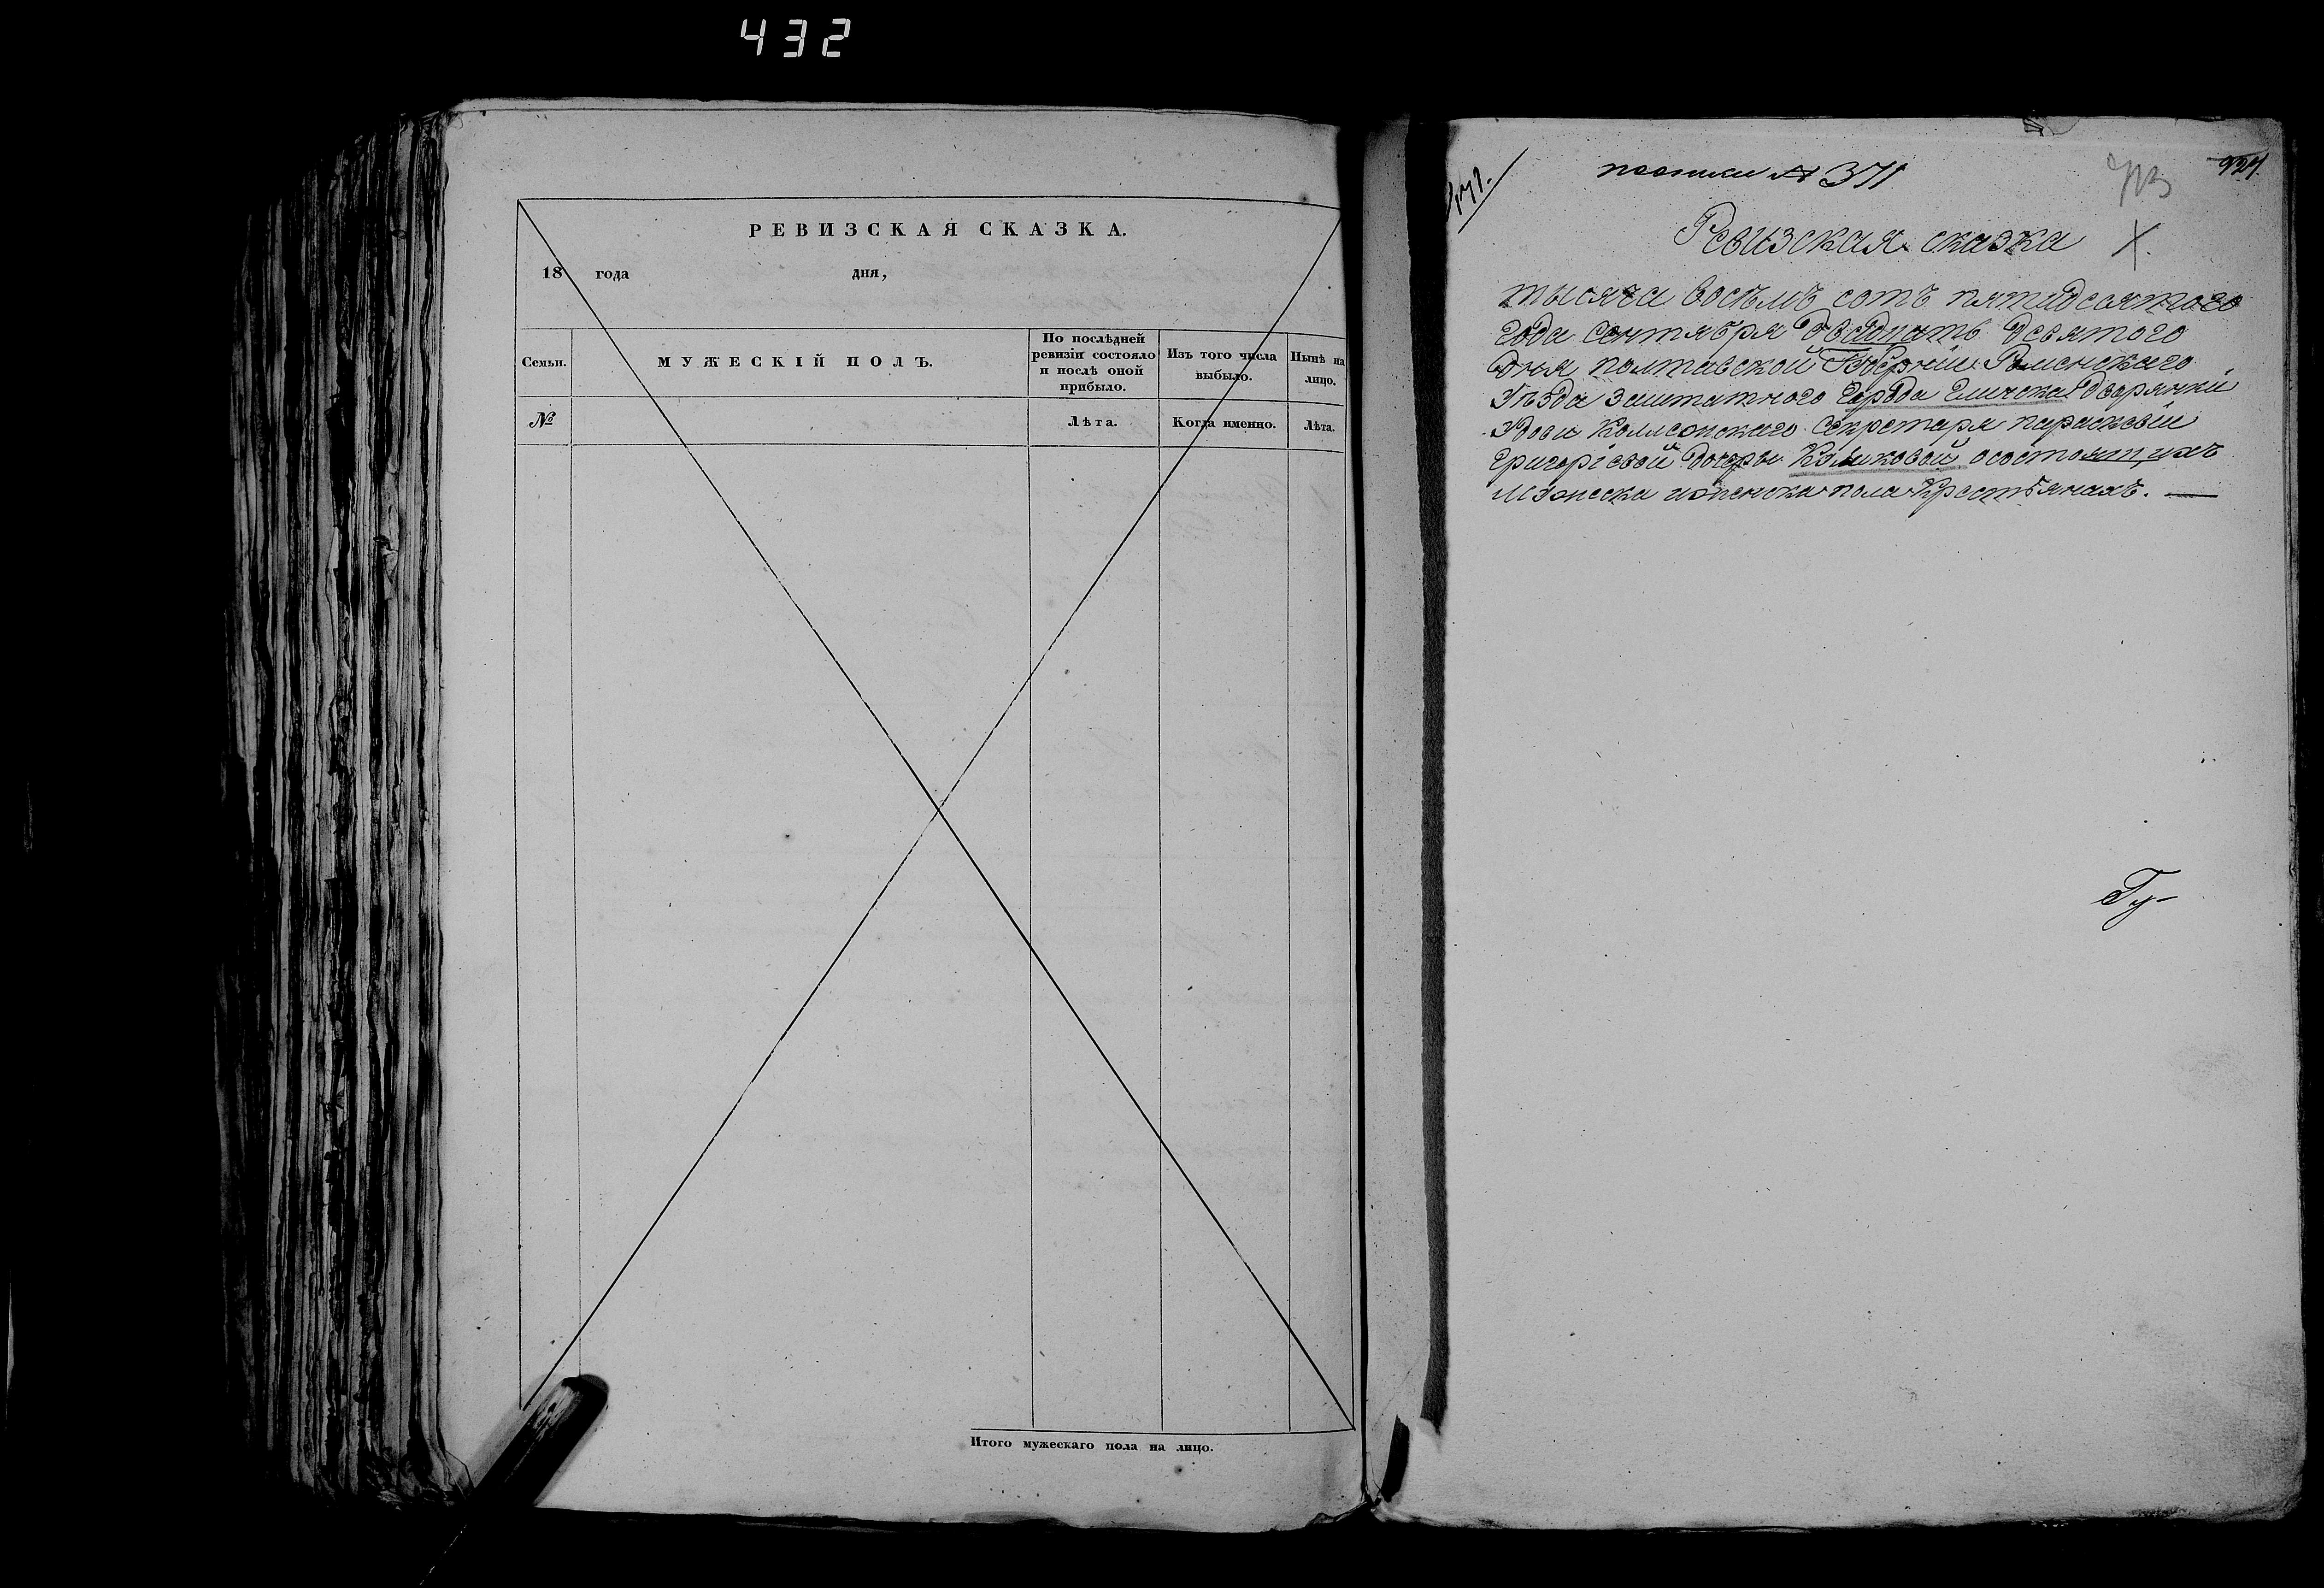 432
РЕВИЗСКАЯ СКАЗКА.
18 года дня,
Семьи.
МУЖЕСКІЙ ПОЛЪ.
По послѣдней ревизіи состояло и послѣ оной прибыло.
Изъ того числа выбыло.
Нынѣ на лицо.
№
Лѣта.
Когда именно.
Лѣта.
Итого мужескаго пола на лицо.
№ 371
Ревизская сказка X.
тысяча восѣмъ сотъ пятидесятого
года сентября двадцать девятого
дня полтавской Губерніи Роменского
Уѣзда заштатного города Глинска дворянки
Удови Коллежского секретаря параскевіи
григоріевой дочери осостоящихъ
Мужеска иженска пола Крестѣянахъ.